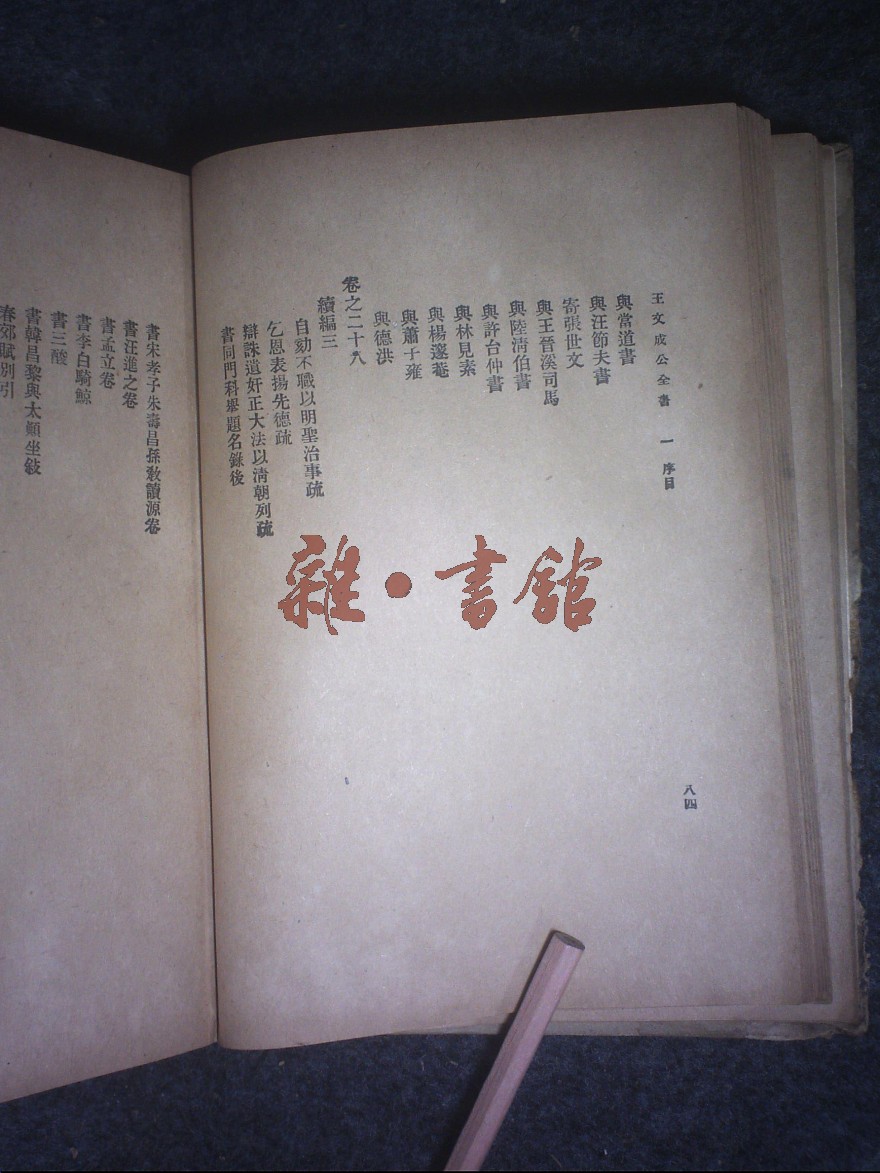 王文成公全書 一 序目
八四
與當道書
與汪節夫書
寄張世文
與王晉溪司馬
與陸清伯書
與許台仲書
與林見素
與楊邃菴
與蕭子雍
與德洪
卷之二十八
續編三
自劾不職以明聖治事疏
乞恩表揚先德疏
辯誅遺奸正大法以清朝列疏
書同門科舉題名錄後
書宋孝子朱壽昌孫教讀源卷
書汪進之卷
書孟立卷
書李白騎鯨
書三酸
書韓昌黎與太顛坐敍
春郊賦別引
雜・書館